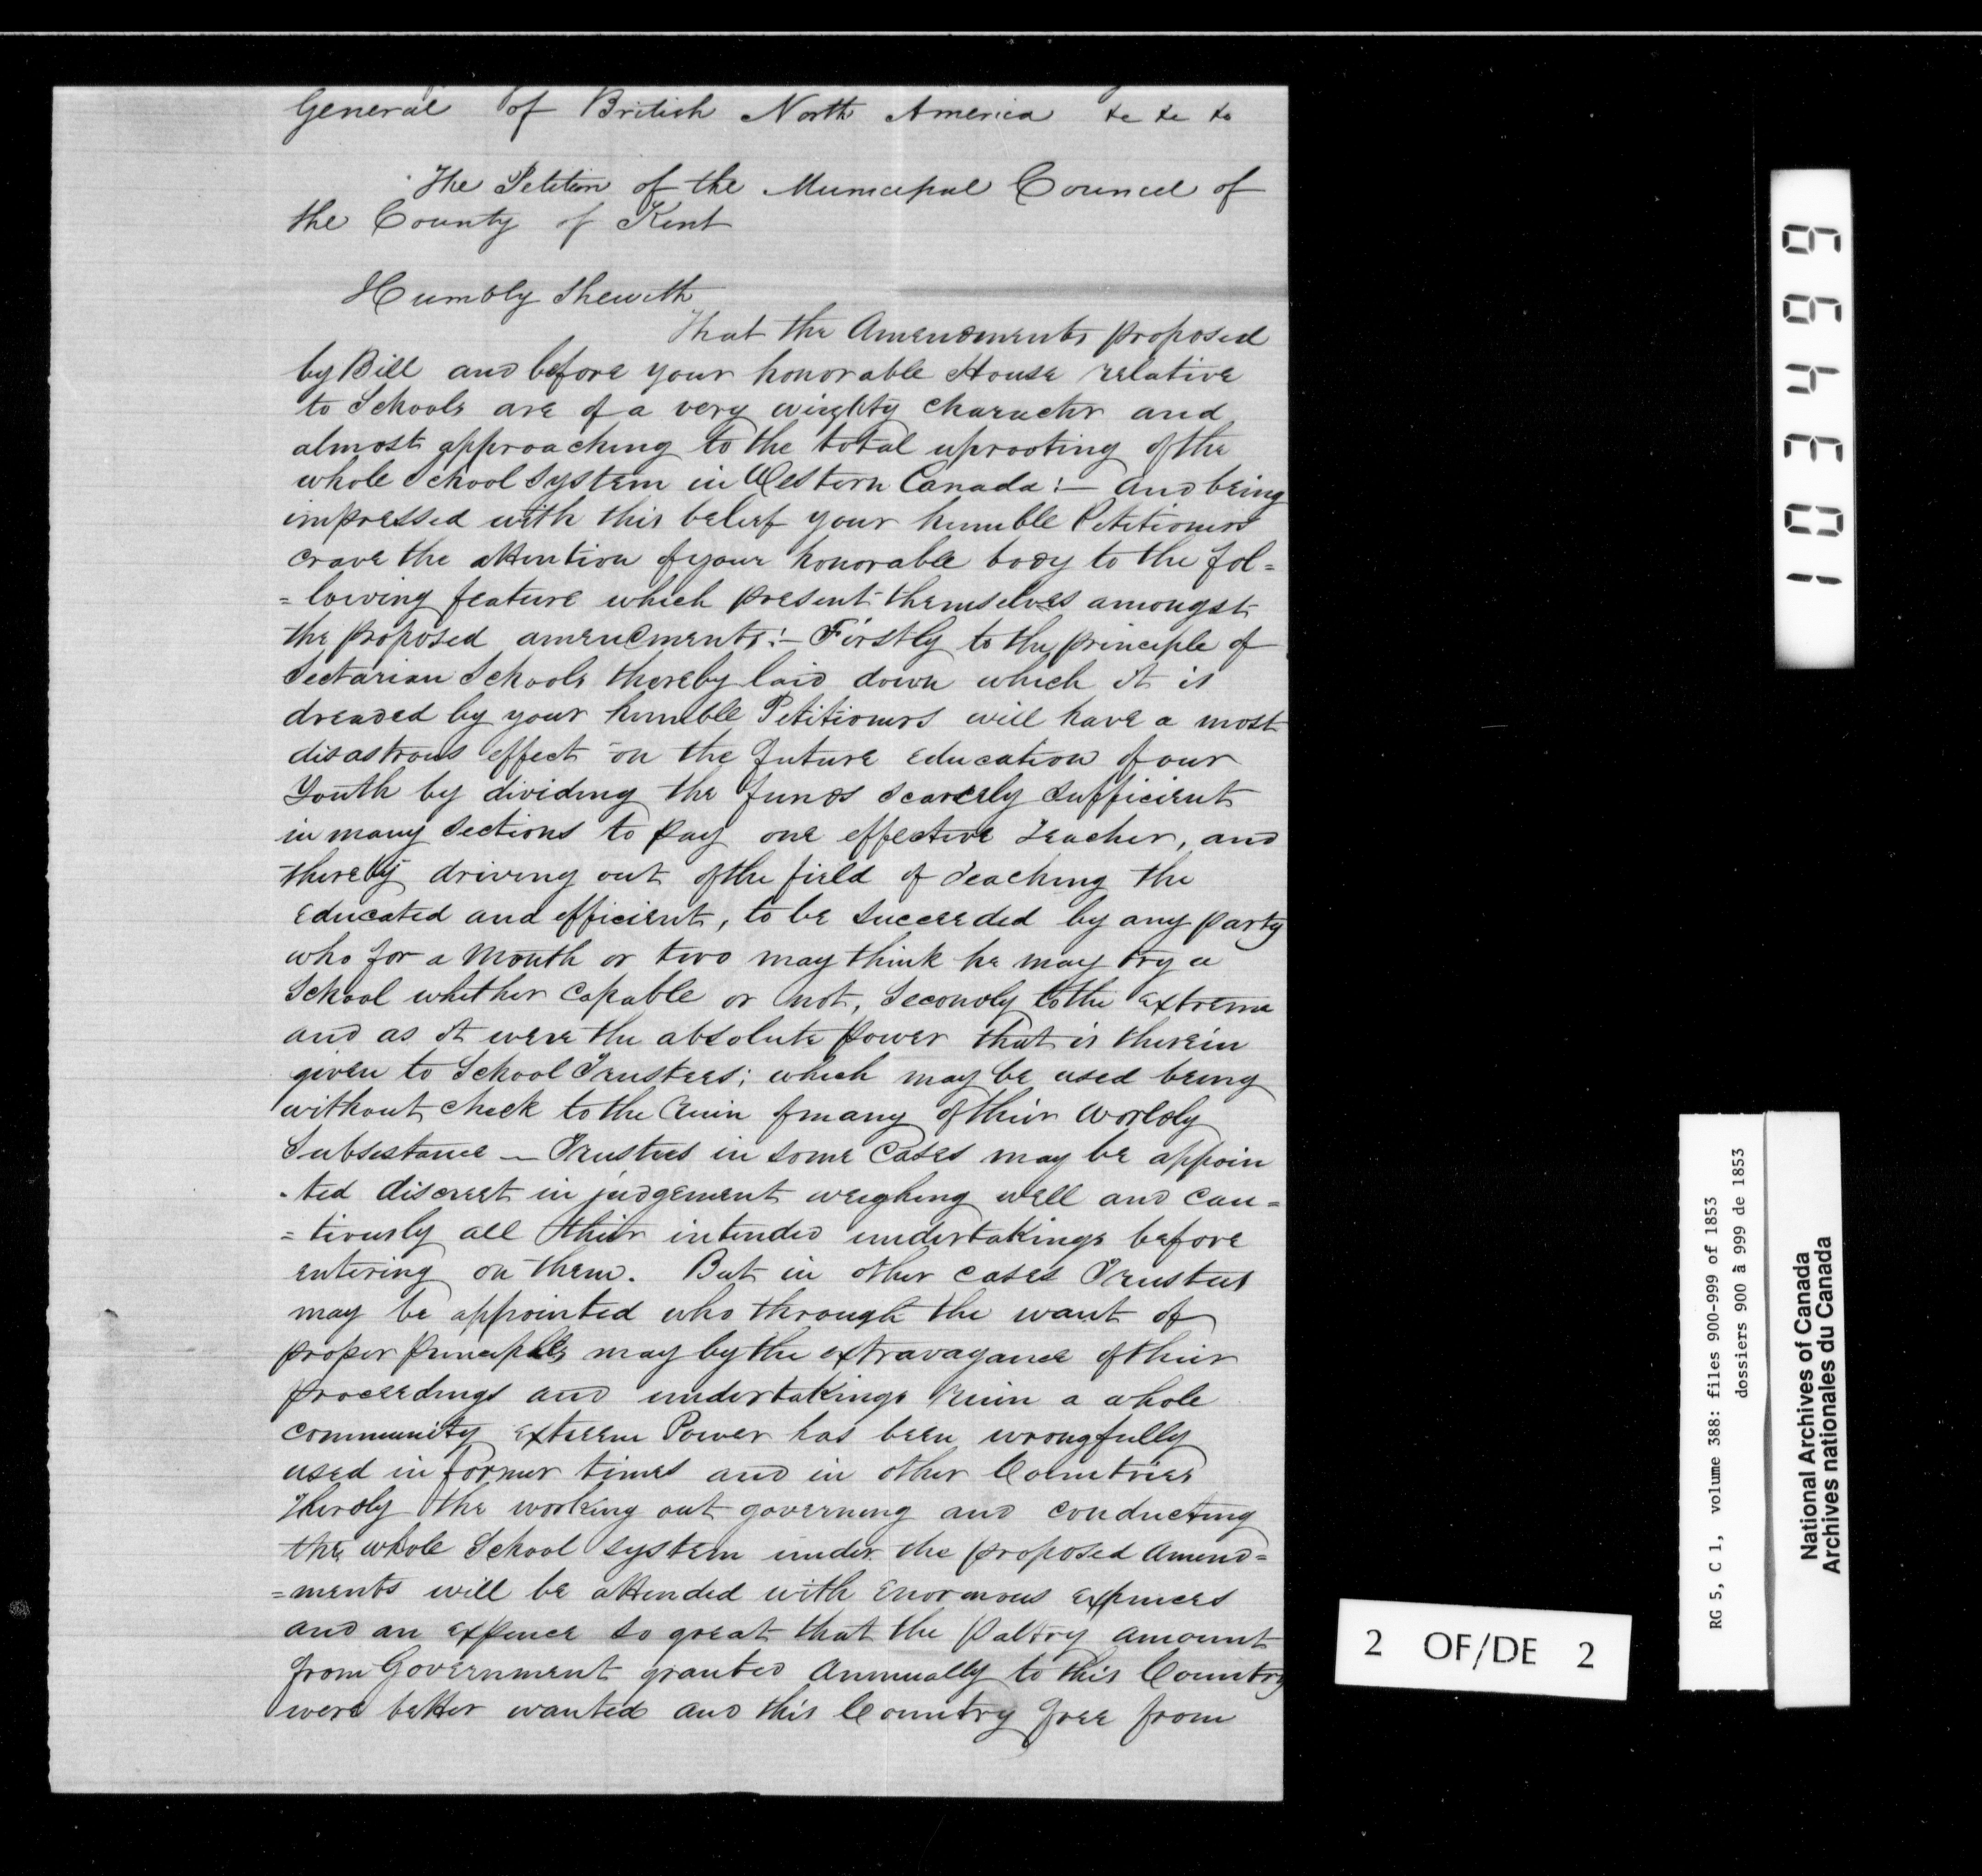 General of British North America &c &c &c
The Petition of the Municipal Council of
the County of Kent
Humbly Sheweth
That the Amendments proposed
by Bill and before your honorable House relative
to Schools are of a very weighty character and
almost approaching to the total uprooting of the
whole School System in Western Canada :— And being
impressed with this belief your humble Petitioners
crave the attention of your honorable body to the fol=
=lowing feature which present themselves amongst
the proposed amendments :— Firstly to the principle of
Sectarian Schools thereby laid down which it is
dreaded by your humble Petitioners will have a most
disastrous effect on the future education of our
Youth by dividing the funds scarcely sufficient
in many sections to pay one effective Teacher, and
thereby driving out of the field of Teaching the
educated and efficient, to be succeeded by any party
who for a Month or two may think he may try a
School whether capable or not, Secondly to the extreme
and as it were the absolute power that is therein
given to School Trustees; which may be used being
without check to the ruin of many of their worldly
Subsistance — Trustees in some cases may be appoin
-ted discreet in judgement weighing well and cau=
=tiously all their intended undertakings before
entering on them. But in other cases Trustees
may be appointed who through the want of
proper principles may by the extravagance of their
proceedings and undertakings ruin a whole
community extreem Power has been wrongfully
used in former times and in other Countries
Therdly the working out governing and conducting
the whole School System under the proposed Amend=
=ments will be attended with enormous expences
and an expence so great that the paltry amount
from Government granted Annually to this Country
were better wanted and this Country free from
103499
RG 5, C 1, volume 388: files 900-999 of 1853
dossiers 900 à 999 de 1853
National Archives of Canada
Archives nationales du Canada
2 OF/DE 2